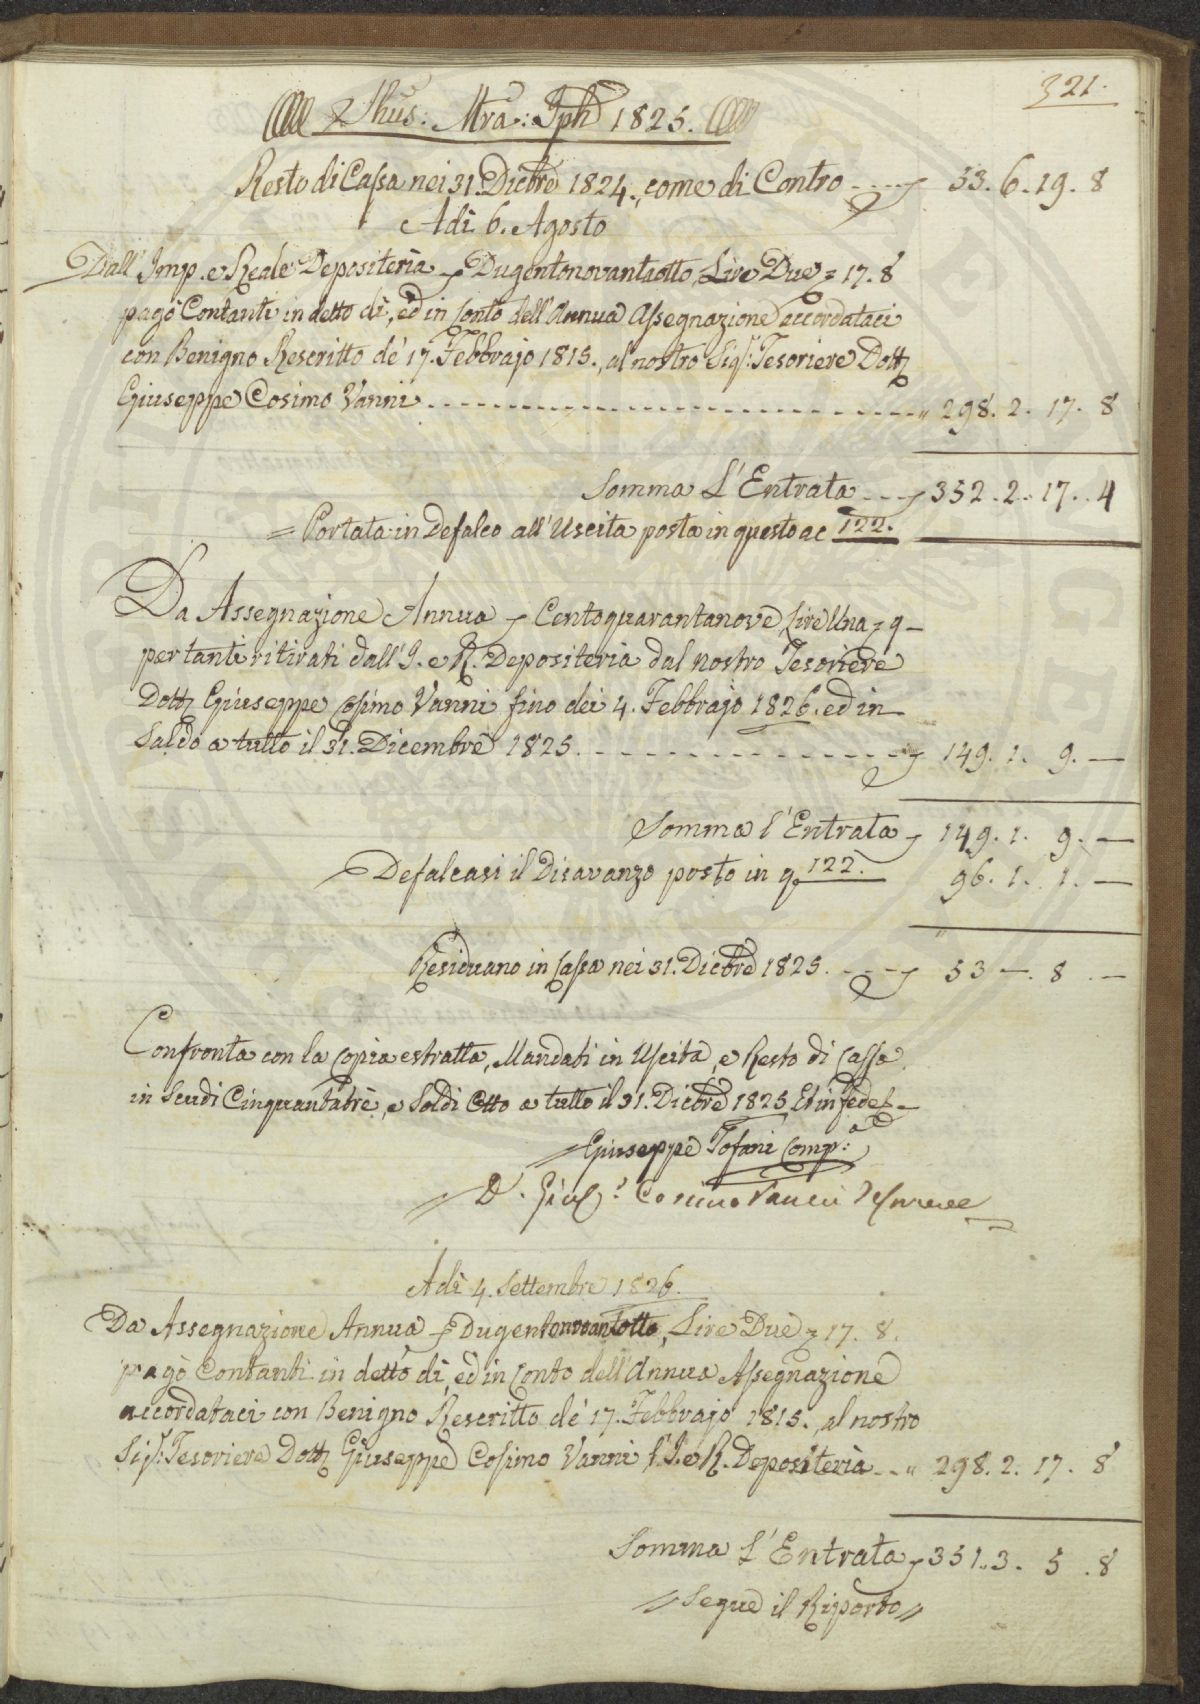 321.
Jhus: Mra: Jph 1825.
Resto di Cassa nei 31. Dicbre 1824., come di Contro 53. 6. 19. 8
Adì 6. Agosto
Dall' Imp. e Reale Depositeria Dugentonovantaotto, Lire Due 17. 8
pagò Contanti in detto dì, ed in Conto dell' Annua Assegnazione accordataci
con Benigno Rescritto de' 17. Febbrajo 1815., al nostro Sigr: Tesoriere Dottr
Giuseppe Cosimo Vanni " 298. 2. 17. 8
Somma L'Entrata 352. 2. 17. 4
= Portata in Defalco all' Uscita posta in questo ac 122.
Da Assegnazione Annua Centoquarantanove, Lire Una, 9 —
per tanti ritirati dall' I. e R. Depositeria dal nostro Tesoriere
Dottr Giuseppe Cosimo Vanni fino dei 4. Febbrajo 1826. ed in
Saldo a tutto il 31. Dicembre 1825. 149. 1. 9. —
Somma l'Entrata 149. 1. 9. —
Defalcasi il Disavanzo posto in q 122. 96. 1. 1. —
Residuano in Cassa nei 31. Dicbre 1825. 53 —. 8. —
Confronta con la Copia estratta, Mandati in Uscita, e Resto di Cassa
in Scudi Cinquantatrè, e Soldi Otto a tutto il 31. Dicbre 1825. Et in fede
Giuseppe Tofani Comp:
D. Gius.e Cosimo Vanni Tesoriere
Adì 4. Settembre 1826.
Da Assegnazione Annua Dugentonovantotto, Lire Due 17. 8.
pagò Contanti in detto dì, ed in Conto dell' Annua Assegnazione
accordataci con Benigno Rescritto de' 17. Febbrajo 1815., al nostro
Sigr: Tesoriere Dottr Giuseppe Cosimo Vanni l'I. e R. Depositeria " 298. 2. 17. 8
Somma L'Entrata 351. 3. 5. 8
// Segue il Riporto //